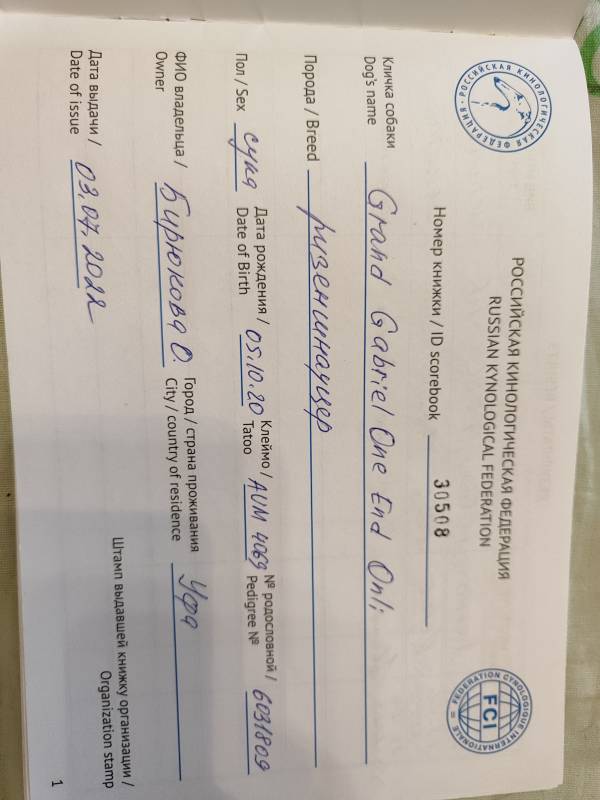 РОССИЙСКАЯ КИНОЛОГИЧЕСКАЯ ФЕДЕРАЦИЯ
РОССИЙСКАЯ КИНОЛОГИЧЕСКАЯ ФЕДЕРАЦИЯ
RUSSIAN KYNOLOGICAL FEDERATION
FEDERATION CYNOLOGIQUE INTERNATIONALE
FCI
Номер книжки / ID scorebook 30508
Кличка собаки
Dog's name Grand Gabriel One End Onli
Порода / Breed ризеншнауцер
Пол / Sex сука Дата рождения / Date of Birth 05.10.20 Клеймо / Tatoo AUM 4069 № родословной / Pedigree № 6031809
ФИО владельца / Owner Бирюкова О. Город / страна проживания City / country of residence Уфа
Дата выдачи /
Date of issue 03.07.2022
Штамп выдавшей книжку организации /
Organization stamp
1